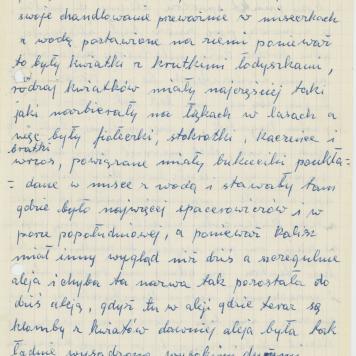 swoje chandlowanie preważnie w miseczkach
z wodą postawione na ziemi ponieważ
to były kwiatki z krutkimi łodyszkami,
rodzaj kwiatków miały najczęściej taki
jaki nazbierały na łąkach w lasach a
więc były fiołeczki, stokrotki, kaczeńce i
bratki
wrzos, powiązane miały bukieciki poukła=
=dane w misce z wodą i stawały tam
gdzie było najwięcej spacerowiczów i w
porze popołudniowej, a ponieważ Kalisz
miał inny wygląd niż dziś a szczegulnie
aleja i chyba ta nazwa tak pozostała do
dziś aleją, gdyż tu w aleji gdzie teraz są
klomby z kwiatów dawniej aleja była tak
ładnie wysadzona wysokimi